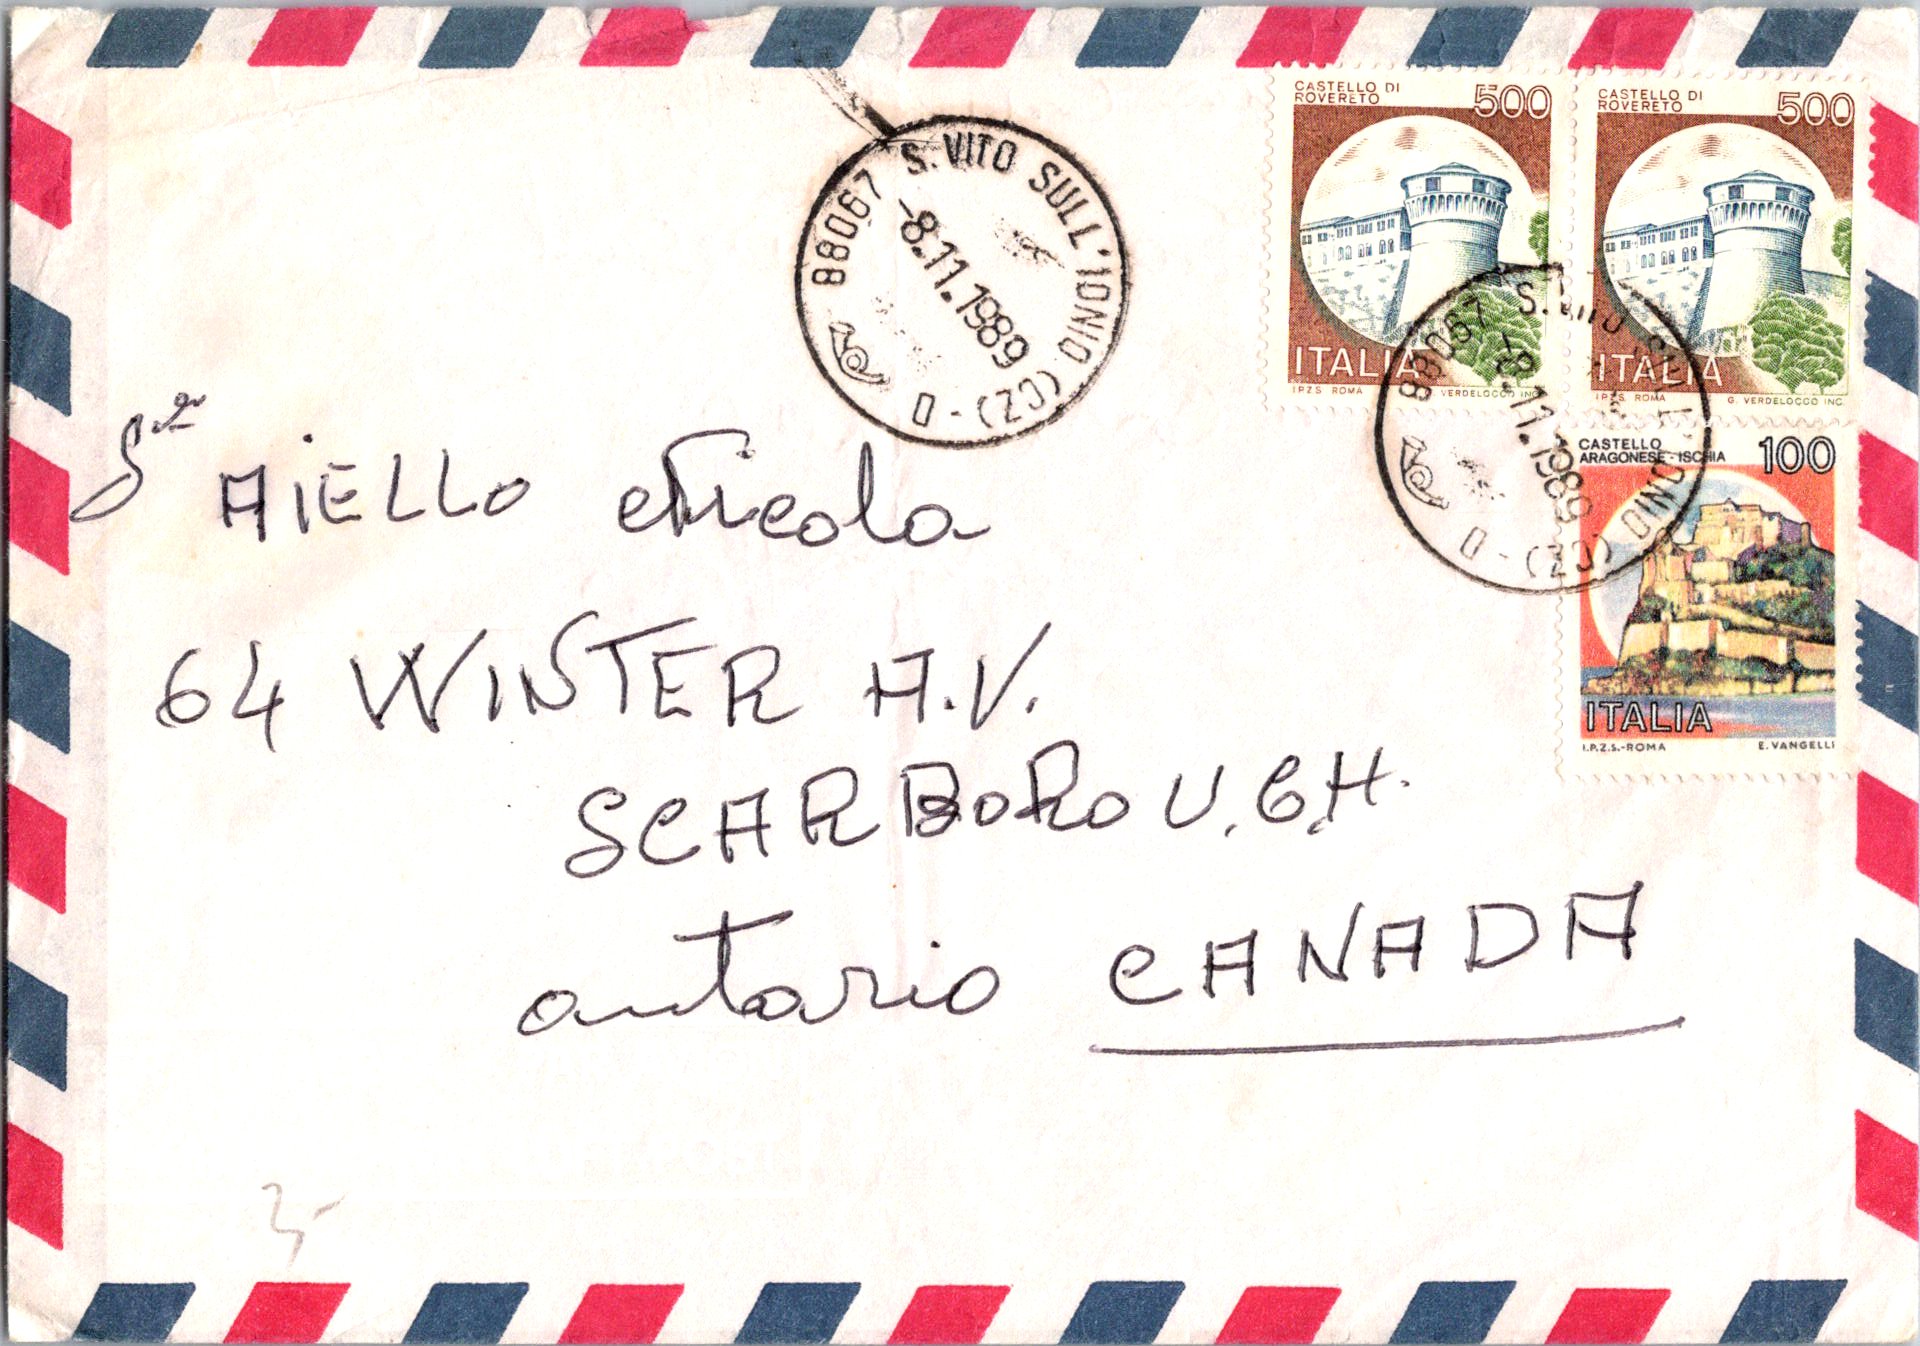 CASTELLO DI
ROVERETO
500
ITALIA
I.P.Z.S. ROMA
VERDELOCCO INC.
CASTELLO DI
ROVERETO
500
ITALIA
I.P.Z.S. ROMA
G. VERDELOCCO INC.
88067 S.VITO SULL'IONIO (CZ) - D
-8.11.1989
88067 S.VITO SULL'IONIO (CZ) - D
-8.11.1989
CASTELLO
ARAGONESE - ISCHIA
100
ITALIA
I.P.Z.S.-ROMA
E. VANGELLI
AiELLO Nicola
64 WINTER A.V.
SCARBOROU.GH.
ontario CANADA